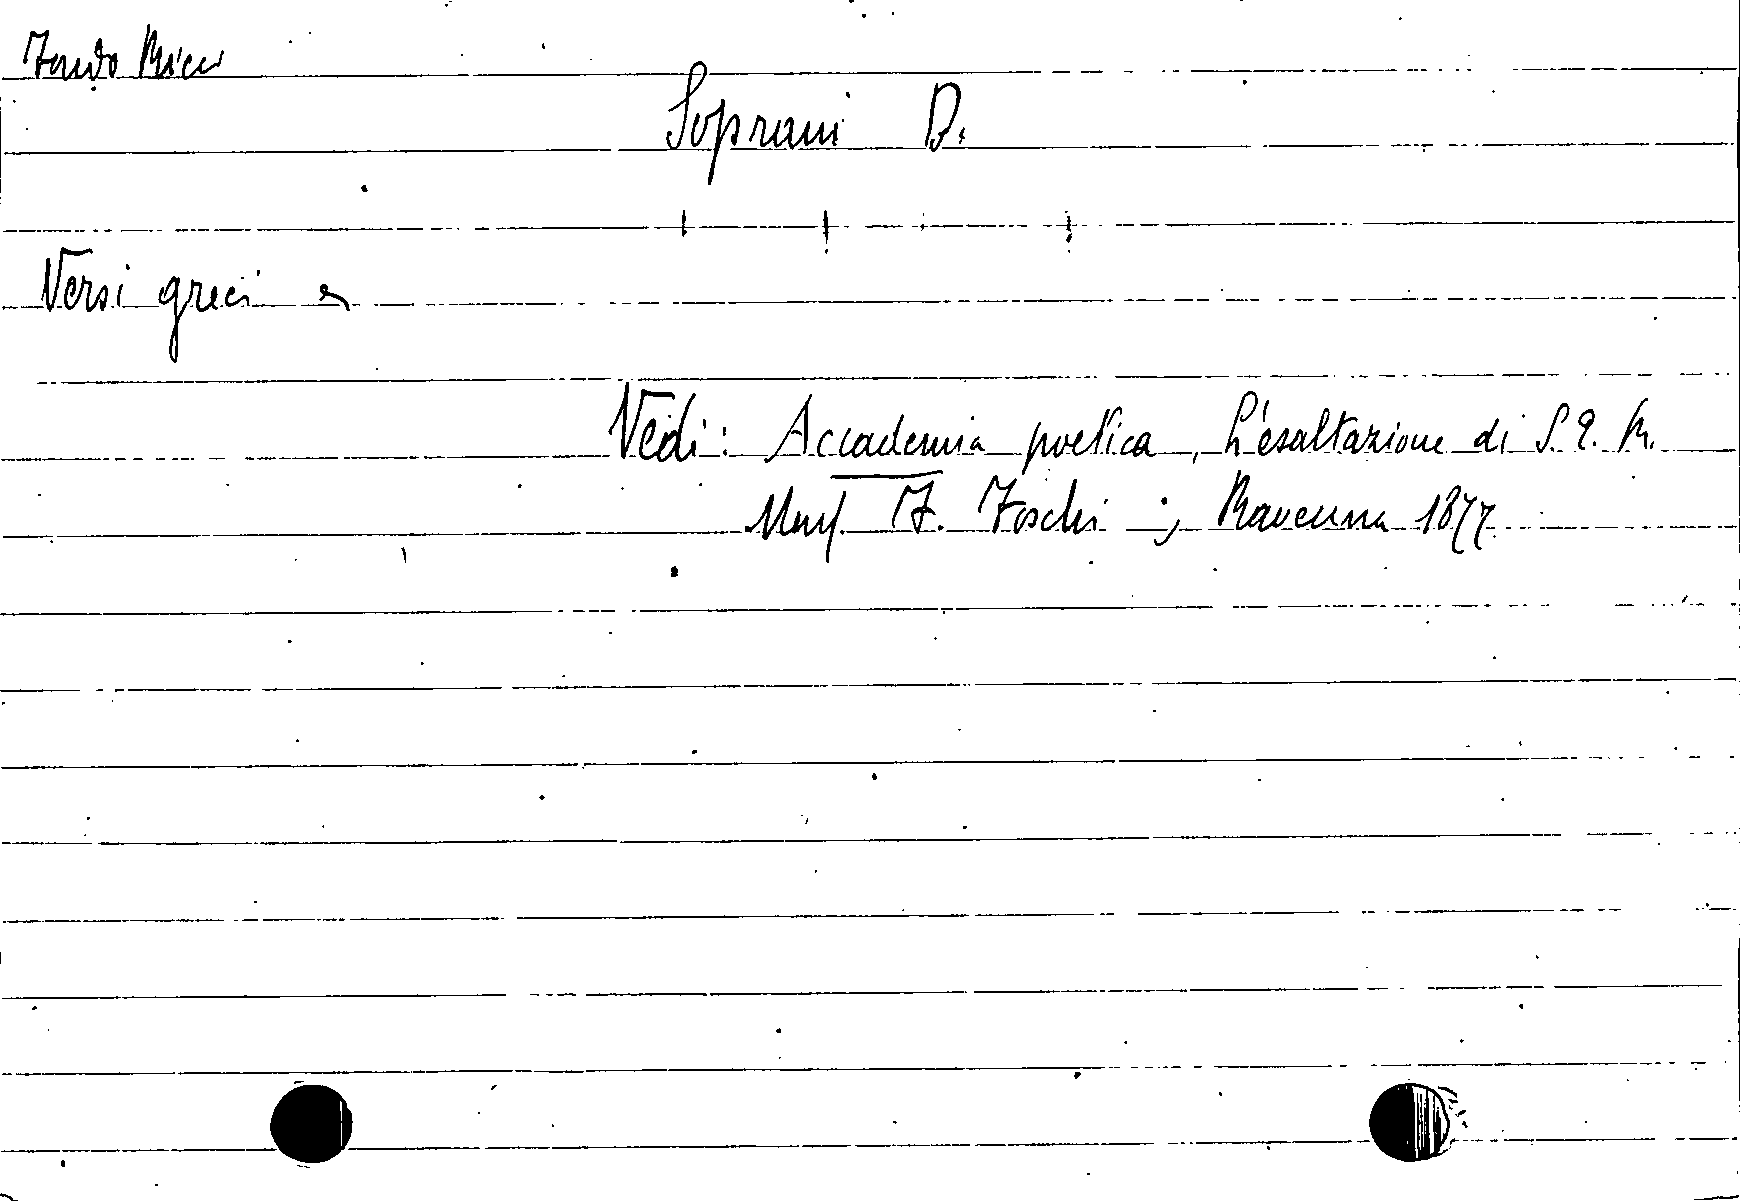 Fondo Ricci
Soprani D.
Versi greci
Vedi: Accademia poetica, L'esaltazione di S. E. R.
Mons. F. Foschi ; Ravenna 1877